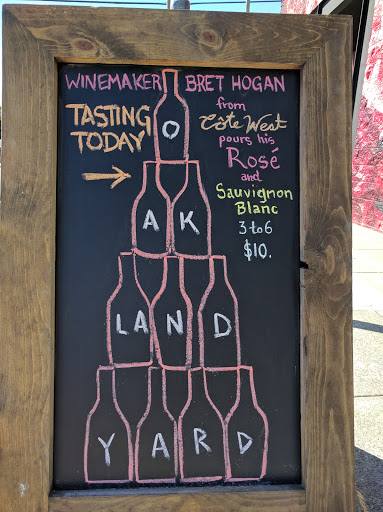 WINEMAKER BRET HOGAN
TASTING
TODAY
from
Côte West
pours his
Rosé
and
Sauvignon
Blanc
3 to 6
$10.
O
AK
LAND
YARD